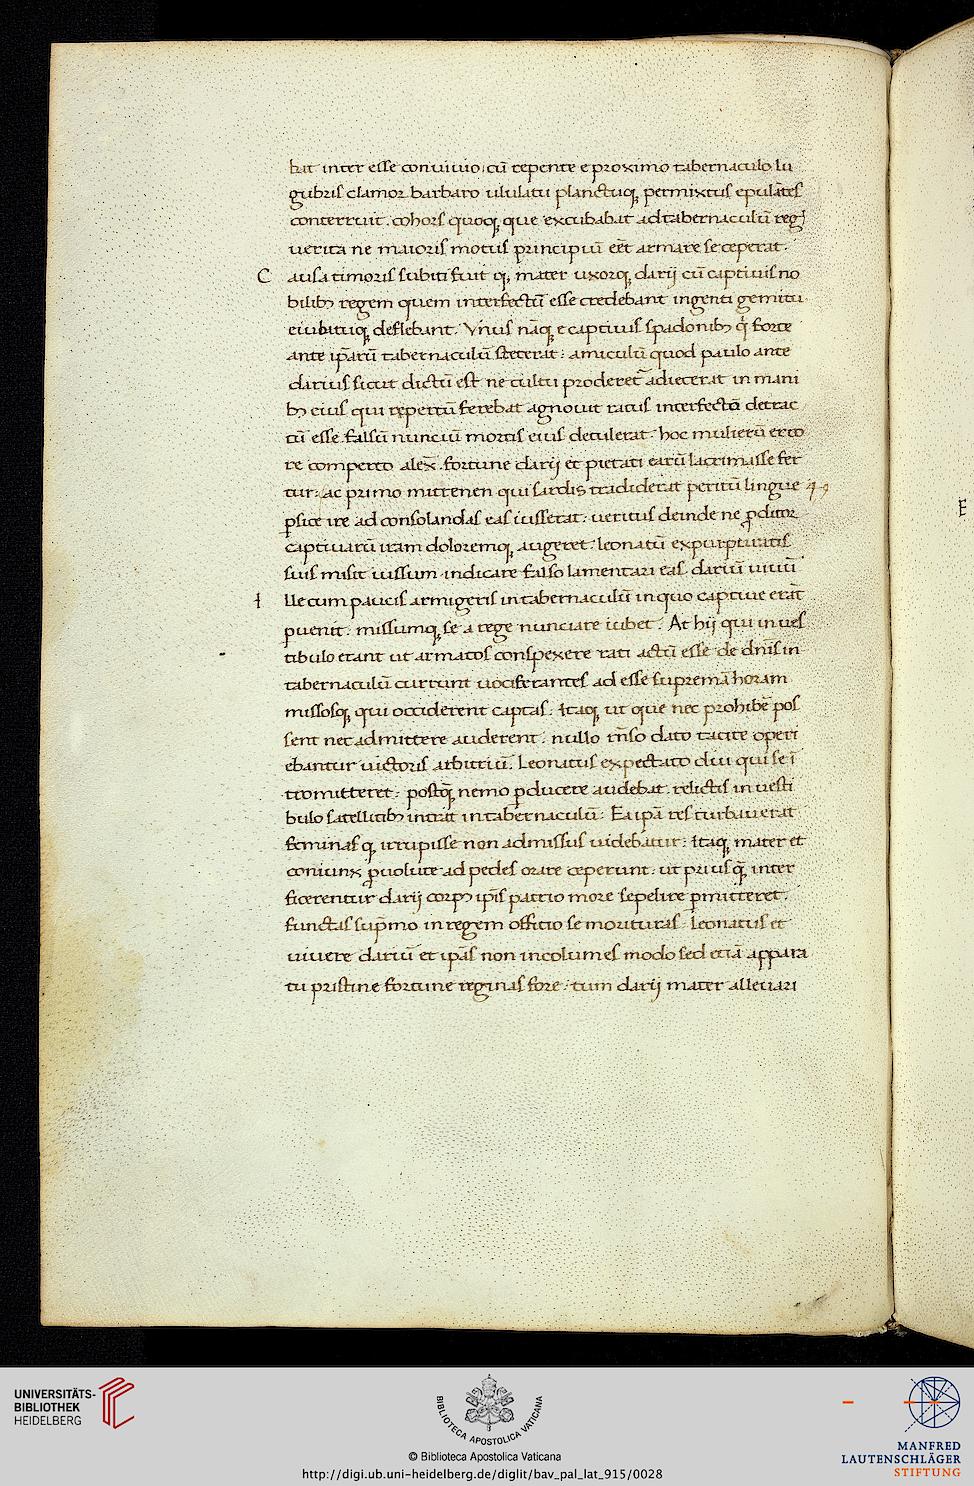 bat inter esse conuiuio: cū repente e proximo tabernaculo lu
gubris clamor barbaro ululatu planctuq; permixtus epulātes
conterruit. cohors quoq; que excubabat ad tabernaculū regꝭ
uerita ne maioris motus principiū eēt armare se ceperat.
C ausa timoris subiti fuit q; mater uxorq; darij cū captiuis no
bilibꝫ regem quem interfectū esse credebant ingenti gemitu
eiubituq; deflebant. Vnus nāq; e captiuis spadonibꝫ q̇ forte
ante ip̄arū tabernaculū steterat: amiculū quod paulo ante
darius sicut dictū est ne cultu proderet᷑ adiecerat in mani
bꝫ eius qui repertū ferebat agnouit ratus interfectō detrac
tū esse falsū nunciū mortis eius detulerat. hoc mulierū erro
re comperto alex̄. fortune darij et pietati earū lacrimasse fer
tur: ac primo mitrenen qui sardis tradiderat peritū lingue
ꝑsice ire ad consolandas eas iusserat: ueritus deinde ne ꝓditor
captiuarū iram doloremq; augeret. leonatū expurpuratis
suis misit iussum indicare falso lamentari eas darium uiuū
I lle cum paucis armigeris in tabernaculū in quo captiue erāt
ꝑuenit. missumq; se a rege nunciare iubet. At hij qui in ues
tibulo erant ut armatos conspexere rati actū esse de dn̄is in
tabernaculū currunt uociferantes ad esse supremā horam
missosq; qui occiderent captas. Itaq; ut que nec prohibē pos
sent nec admittere auderent. nullo rn̄so dato tacite operi
ebantur uictoris arbitriū. Leonatus expectato diu qui se ī
tromitteret: postq̄ nemo ꝓducere audebat. relictis in uesti
bulo satellitibꝫ intrat in tabernaculū. Ea ip̄a res turbauerat
feminas q; irrupisse non admissus uidebatur: itaq; mater et
coniunx ꝓuolute ad pedes orare ceperunt. ut prius q̄ inter
ficerentur darij corpꝰ ip̄is patrio more sepelire ꝑmitteret.
functas sup̄mo in regem officio se morituras. Leonatus et
uiuere dariū et ip̄as non incolumes modo sed etiā appara
tu pristine fortune reginas fore: tum darij mater alleuari
E
UNIVERSITÄTS-
BIBLIOTHEK
HEIDELBERG
BIBLIOTECA APOSTOLICA VATICANA
© Biblioteca Apostolica Vaticana
http://digi.ub.uni-heidelberg.de/diglit/bav_pal_lat_915/0028
MANFRED
LAUTENSCHLÄGER
STIFTUNG